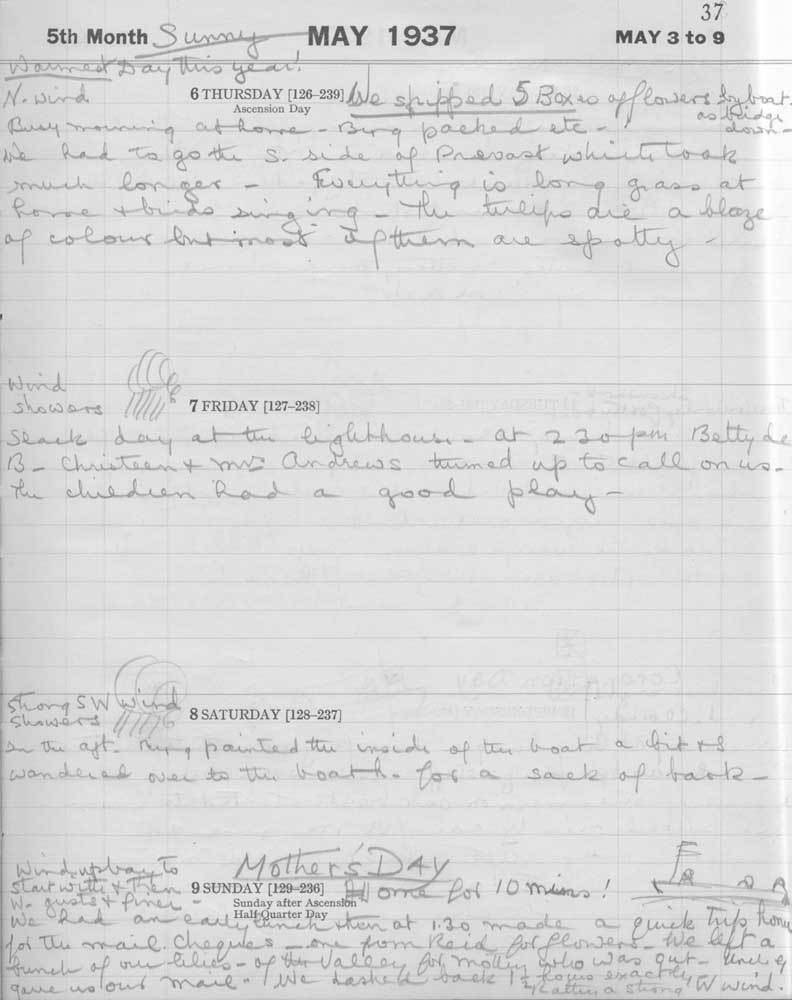 37
5th Month Sunny MAY 1937 MAY 3 to 9
Warmest Day this year!
N. wind 6 THURSDAY [126–239] We shipped 5 Boxes of flowers by boat.
Ascension Day as bridge
Busy morning at home – packed etc – down –
We had to go the S. side of Prevost which took
much longer – Everything is long grass at
home + birds singing – The tulips are a blaze
of colour but most of them are spotty –
Wind
showers 7 FRIDAY [127–238]
Slack day at the lighthouse – at 2 30 pm Betty de
B – Christeen + Mrs Andrews turned up to call on us –
The children had a good play –
Strong SW wind
showers 8 SATURDAY [128–237]
In the aft. painted the inside of the boat a bit + I
wandered over to the boath. for a sack of bark –
Wind up bay to Mother's DAY
start with + then 9 SUNDAY [129–236] Home for 10 mins!
W. gusts + finer – Sunday after Ascension
Half-Quarter Day
We had an early lunch then at 1.30 made a quick trip home
for the mail. Cheques – one from Reid for flowers – We left a
bunch of our lilies – of the Valley for mother who was out –
gave us our mail – We dashed back 1½ hours exactly
a strong W wind.